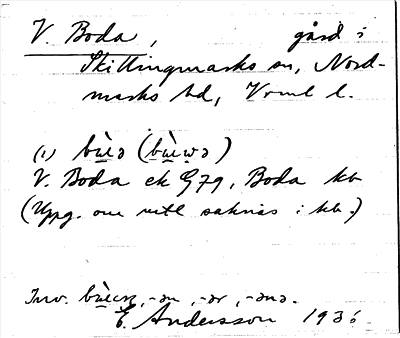 V. Boda, gård i
Skillingmarks sn, Nord-
marks hd, Vrml l.
(1) bùeə (bùewə)
V. Boda ek G79, Boda kb
(Uppg. om mtl saknas i kb.)
Inv. -ən, -ər, -ənə.
E. Andersson 1936